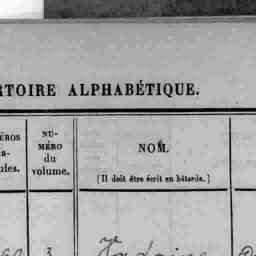 RTOIRE ALPHABÉTIQUE.
NU-
MÉRO
du
volume.
NOM.
(Il doit être écrit en bâtarde.)
3